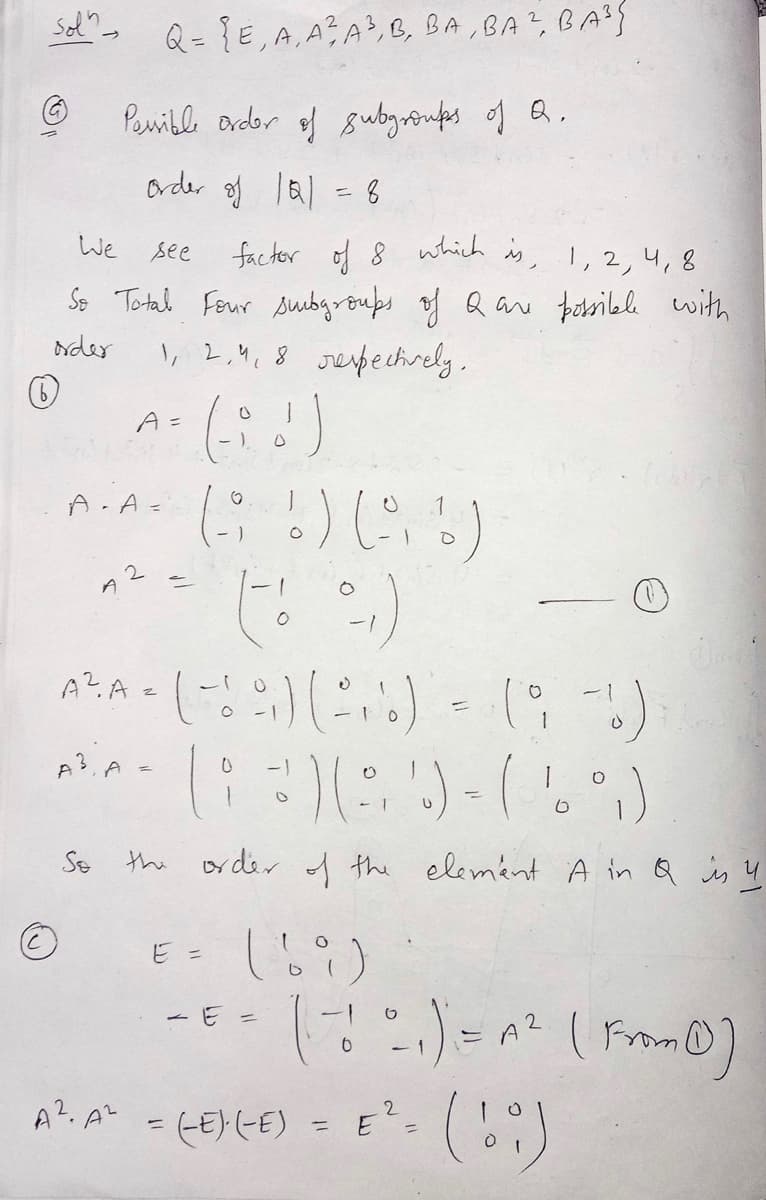 Solⁿ → Q = {E, A, A², A³, B, BA, BA², BA³}
(a) Possible order of subgroups of Q.
order of |Q| = 8
We see factor of 8 which is, 1, 2, 4, 8
So Total Four subgroups of Q are possible with
order 1, 2, 4, 8 respectively.
(b)
A = ( 0 1 ; -1 0 )
A · A = ( 0 1 ; -1 0 ) ( 0 1 ; -1 0 )
A² = ( -1 0 ; 0 -1 ) — (1)
A². A = ( -1 0 ; 0 -1 ) ( 0 1 ; -1 0 ) = ( 0 -1 ; 1 0 )
A³. A = ( 0 -1 ; 1 0 ) ( 0 1 ; -1 0 ) = ( 1 0 ; 0 1 )
So the order of the element A in Q is 4
(c) E = ( 1 0 ; 0 1 )
-E = ( -1 0 ; 0 -1 ) = A² ( From (1) )
A². A² = (-E)·(-E) = E² = ( 1 0 ; 0 1 )